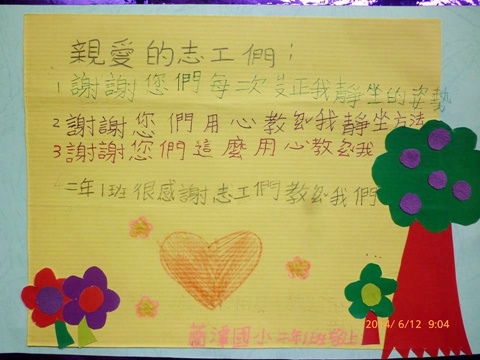 親愛的志工們：
1 謝謝您們每次正我靜坐的姿勢
2 謝謝您們用心教給我靜坐方法
3 謝謝您們這麼用心教給我
二年1班很感謝志工們教給我們
蘭潭國小二年1班敬上
2014/6/12 9:04